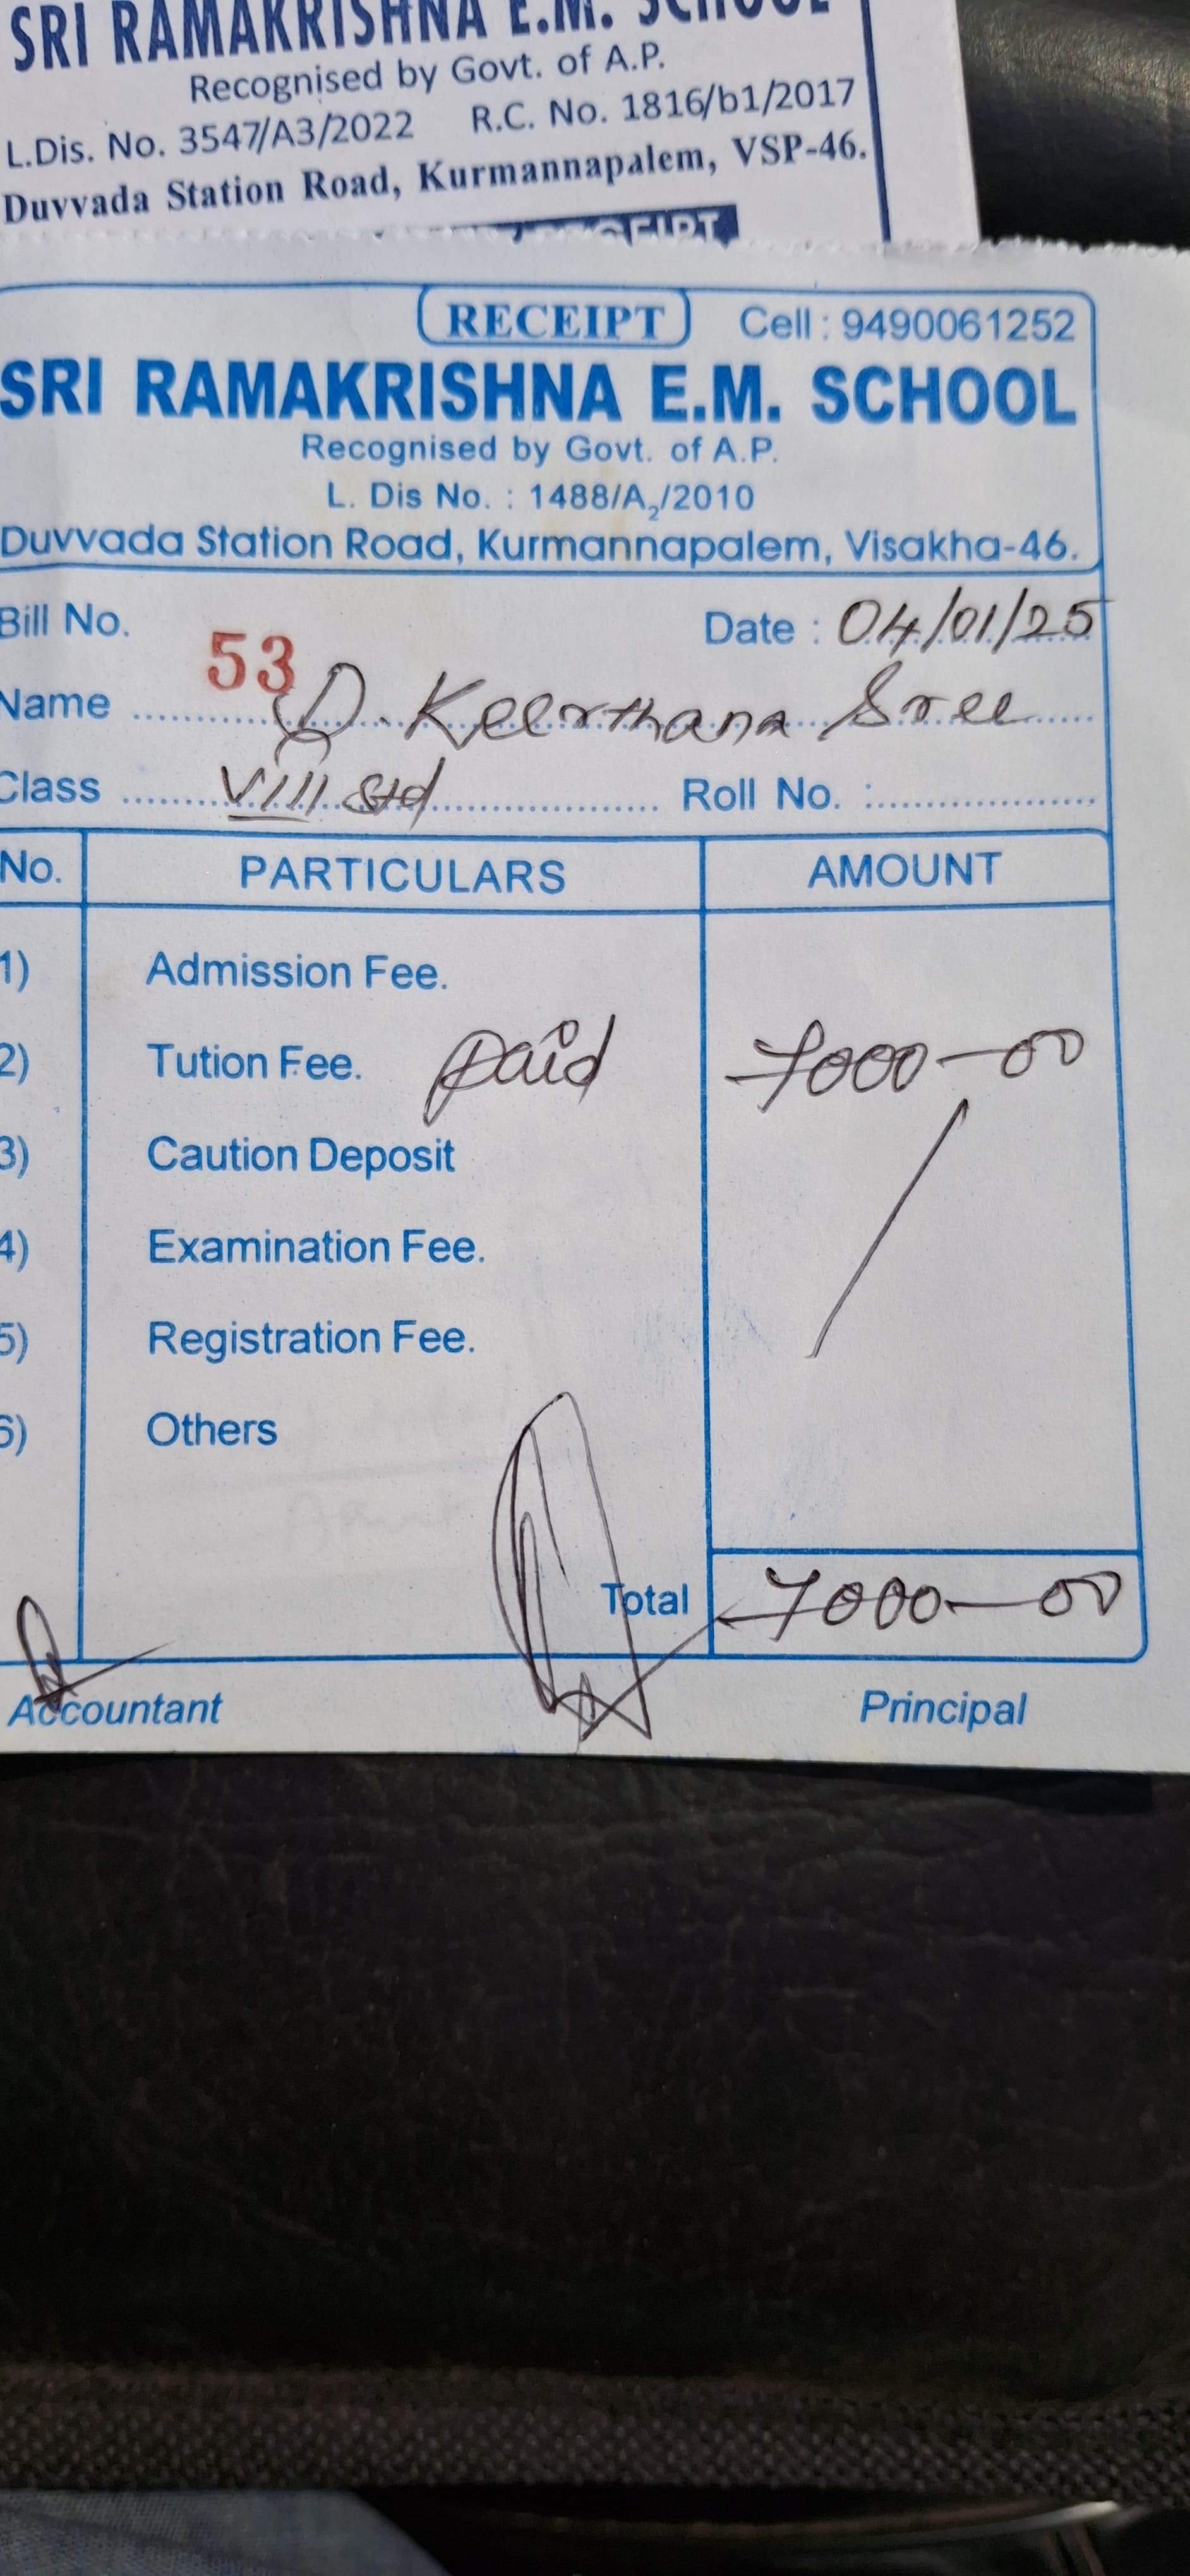 SRI RAMAKRISHNA E.M. SCHOOL
Recognised by Govt. of A.P.
L.Dis. No. 3547/A3/2022 R.C. No. 1816/b1/2017
Duvvada Station Road, Kurmannapalem, VSP-46.
RECEIPT Cell : 9490061252
SRI RAMAKRISHNA E.M. SCHOOL
Recognised by Govt. of A.P.
L. Dis No. : 1488/A2/2010
Duvvada Station Road, Kurmannapalem, Visakha-46.
Bill No. 53 Date : 04/01/25
Name D. Keerthana Sree
Class VIII std Roll No. :
No. PARTICULARS AMOUNT
1) Admission Fee.
2) Tution Fee. paid 7000-00
3) Caution Deposit
4) Examination Fee.
5) Registration Fee.
6) Others
Total 7000-00
Accountant Principal